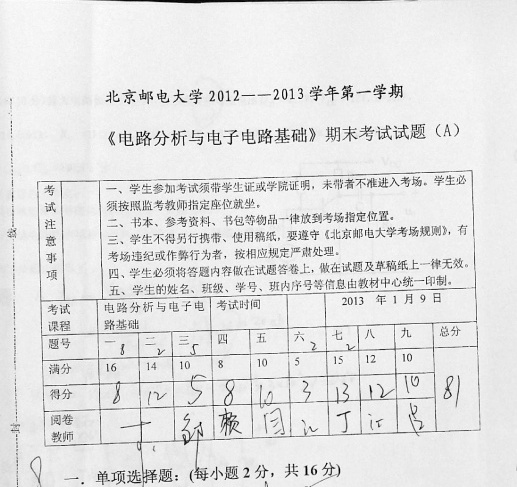 北京邮电大学2012——2013学年第一学期
《电路分析与电子电路基础》期末考试试题（A）
考试注意事项
一、学生参加考试须带学生证或学院证明，未带者不准进入考场。学生必
须按照监考教师指定座位就坐。
二、书本、参考资料、书包等物品一律放到考场指定位置。
三、学生不得另行携带、使用稿纸，要遵守《北京邮电大学考场规则》，有
考场违纪或作弊行为者，按相应规定严肃处理。
四、学生必须将答题内容做在试题答卷上，做在试题及草稿纸上一律无效。
五、学生的姓名、班级、学号、班内序号等信息由教材中心统一印制。
考试课程 电路分析与电子电路基础 考试时间 2013 年 1 月 9 日
题号 一 二 三 四 五 六 七 八 九 总分
8 2 5 2 2
满分 16 14 10 8 10 5 15 12 10
得分 8 12 5 8 10 3 13 12 10 81
阅卷教师
8 一．单项选择题：(每小题 2 分，共 16 分)